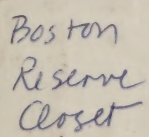 Boston
Reserve
Closet